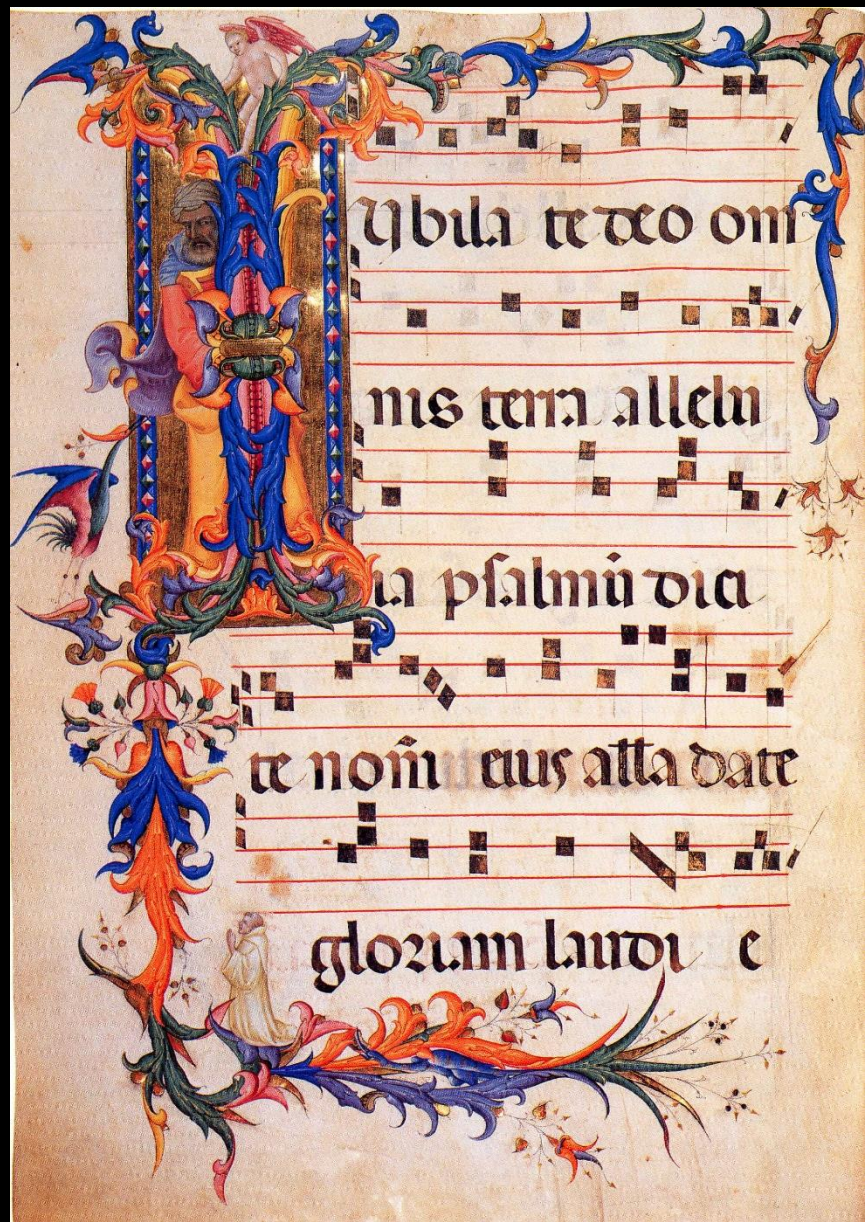 IUbila te deo om
nis terra allelu
ia psalmū dici
te noīni eius all̄a date
gloriam laudi e